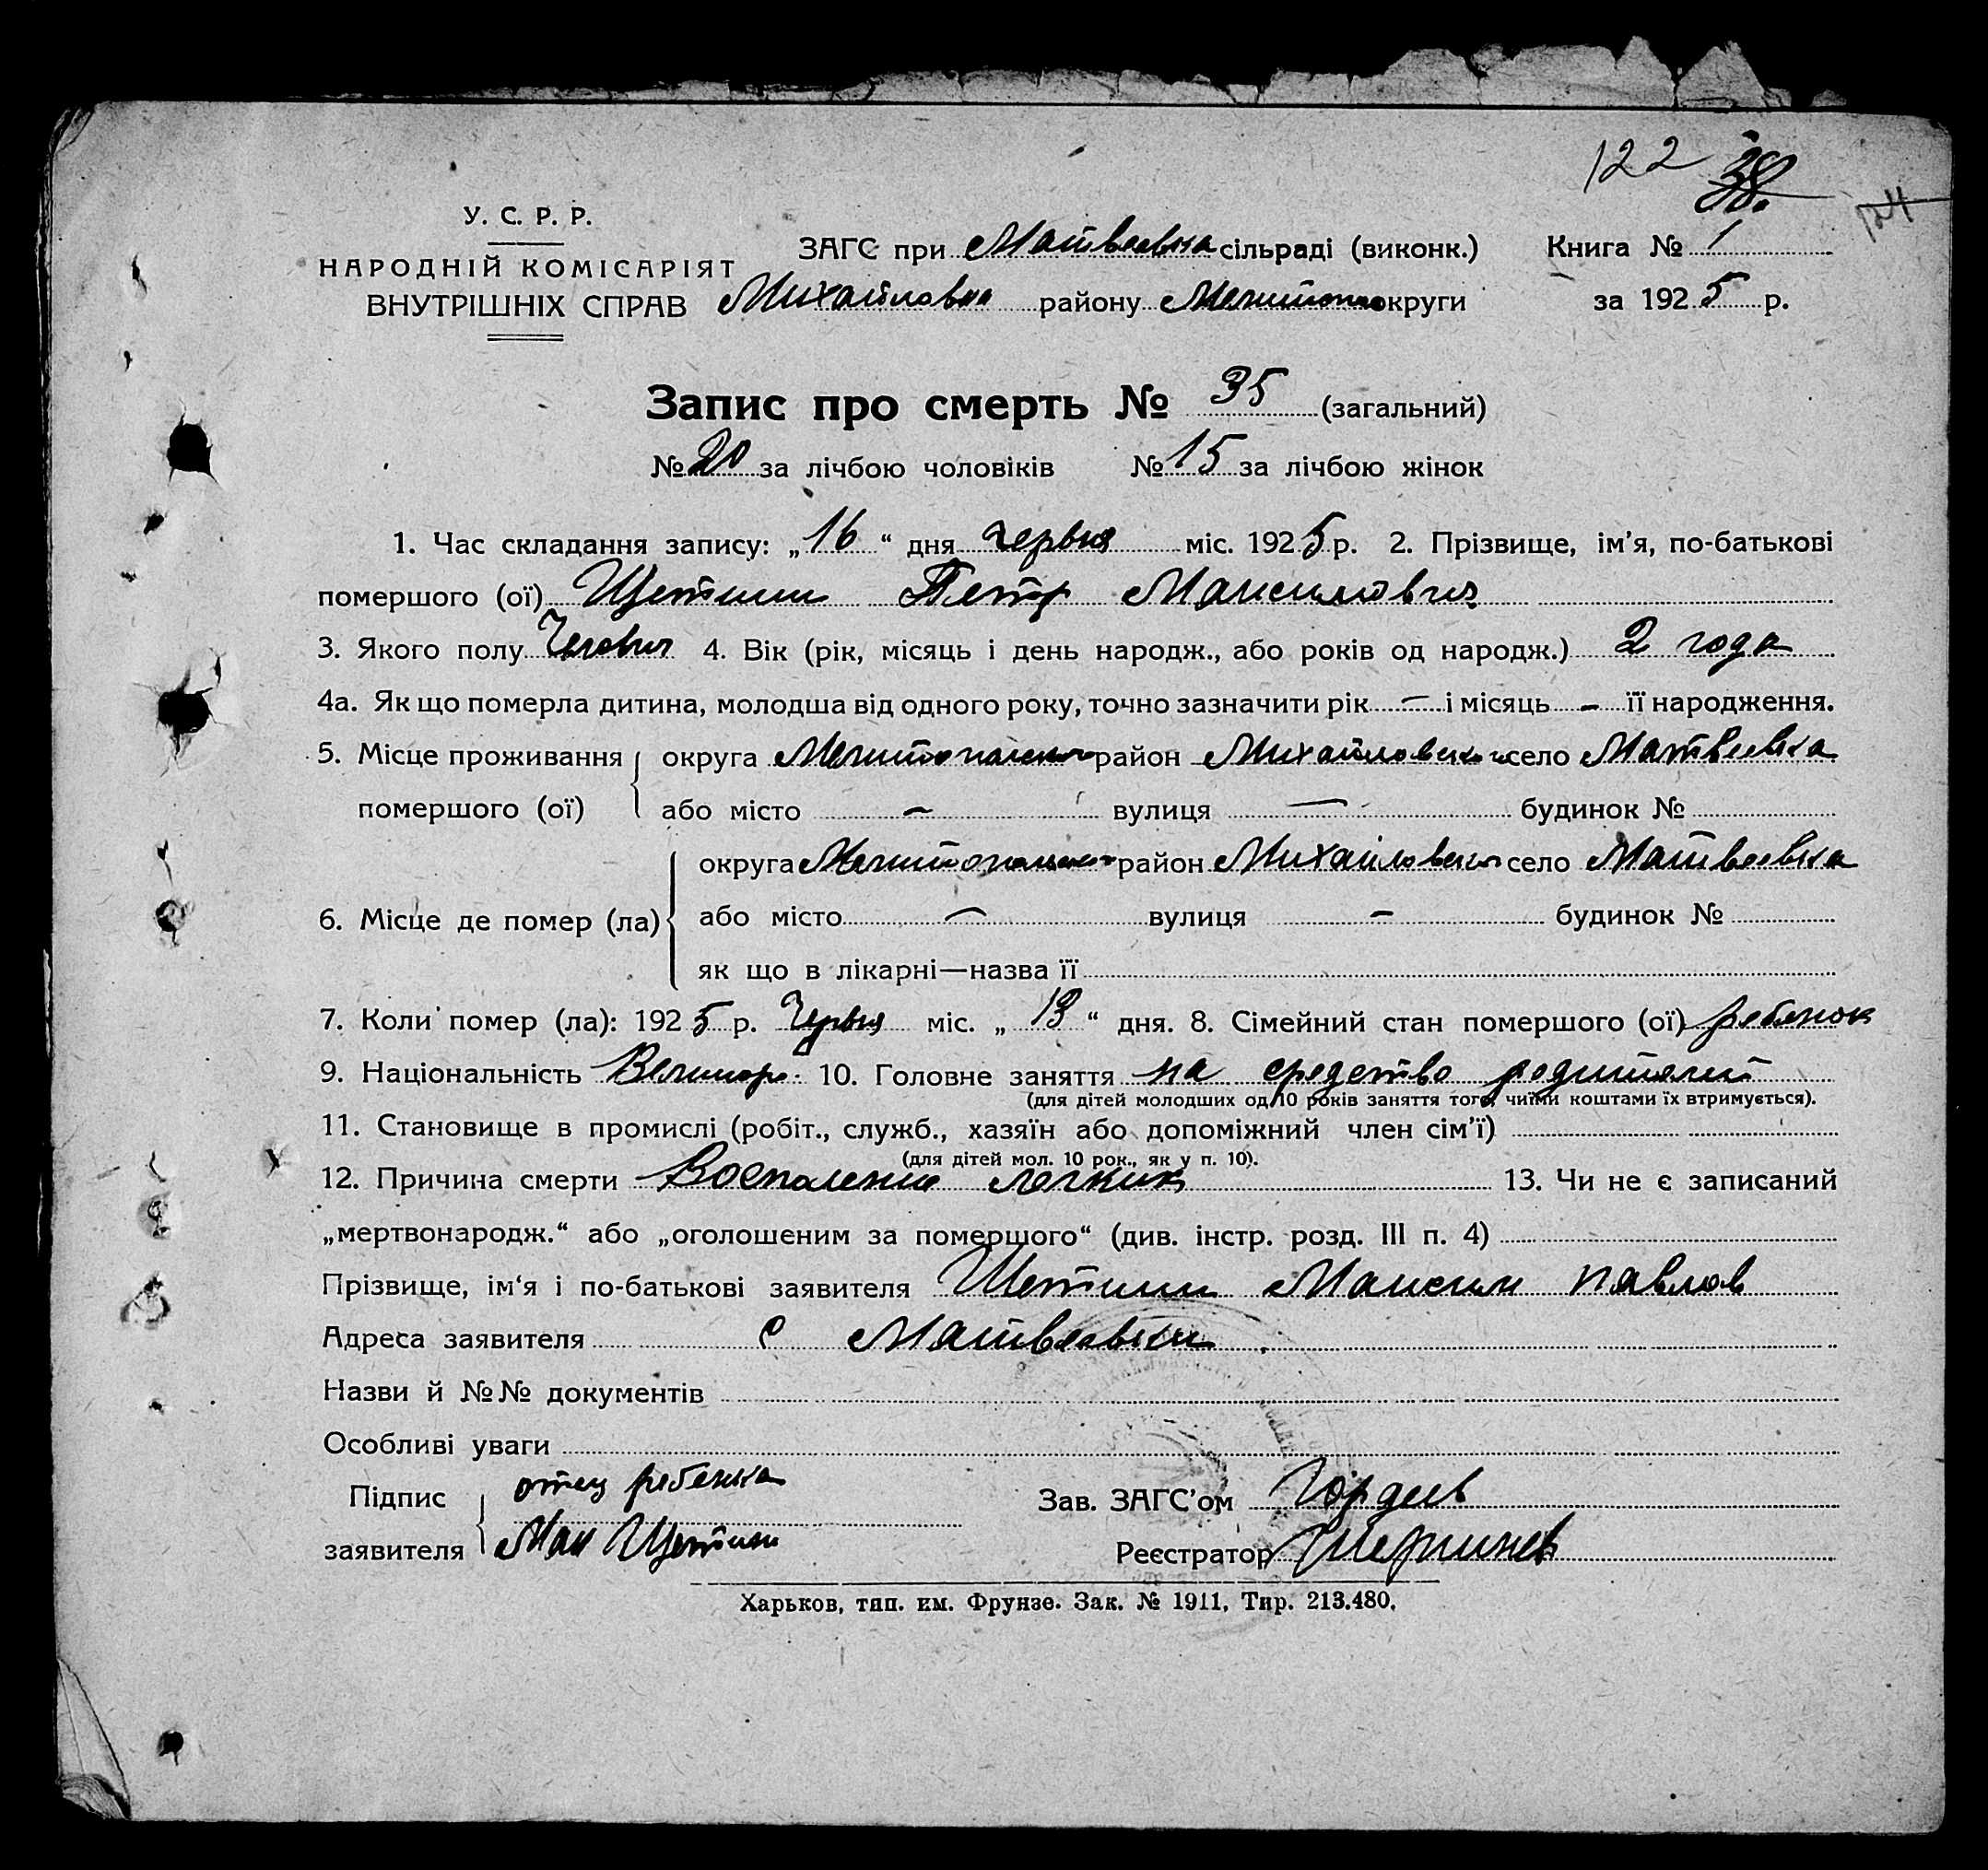 122 38.
У. С. Р. Р.
НАРОДНІЙ КОМІСАРІЯТ
ВНУТРІШНІХ СПРАВ
ЗАГС при Матвеевка сільраді (виконк.) Книга № 1
Михайловка району Мелитопол округи за 1925 р.
Запис про смерть № 35 (загальний)
№ 20 за лічбою чоловіків № 15 за лічбою жінок
1. Час складання запису: „16“ дня червня міс. 1925 р. 2. Прізвище, ім’я, по-батькові
помершого (ої) Щетинин Петр Максимович
3. Якого полу Человіч 4. Вік (рік, місяць і день народж., або років од народж.) 2 года
4а. Як що померла дитина, молодша від одного року, точно зазначити рік — і місяць — її народження.
5. Місце проживання помершого (ої) округа Мелитопольского район Михайловского село Матвеевка
або місто — вулиця — будинок №
6. Місце де помер (ла) округа Мелитопольского район Михайловского село Матвеевка
або місто — вулиця — будинок №
як що в лікарні—назва її
7. Коли помер (ла): 1925 р. Червня міс. „13“ дня. 8. Сімейний стан помершого (ої) ребенок
9. Національність Великор. 10. Головне заняття на средство родителей
(для дітей молодших од 10 років заняття того, чиїми коштами їх втримується).
11. Становище в промислі (робіт., служб., хазяїн або допоміжний член сім’ї)
(для дітей мол. 10 рок., як у п. 10).
12. Причина смерти Воспаление легких 13. Чи не є записаний
„мертвонародж.“ або „оголошеним за помершого“ (див. інстр. розд. III п. 4)
Прізвище, ім‘я і по-батькові заявителя Щетинин Максим Павлов
Адреса заявителя с Матвеевки
Назви й №№ документів
Особливі уваги
Підпис заявителя отец ребенка
Мак Щетинин
Зав. ЗАГС’ом Гордеев
Реєстратор
Харьков, тип. им. Фрунзе. Зак. № 1911, Тир. 213.480.